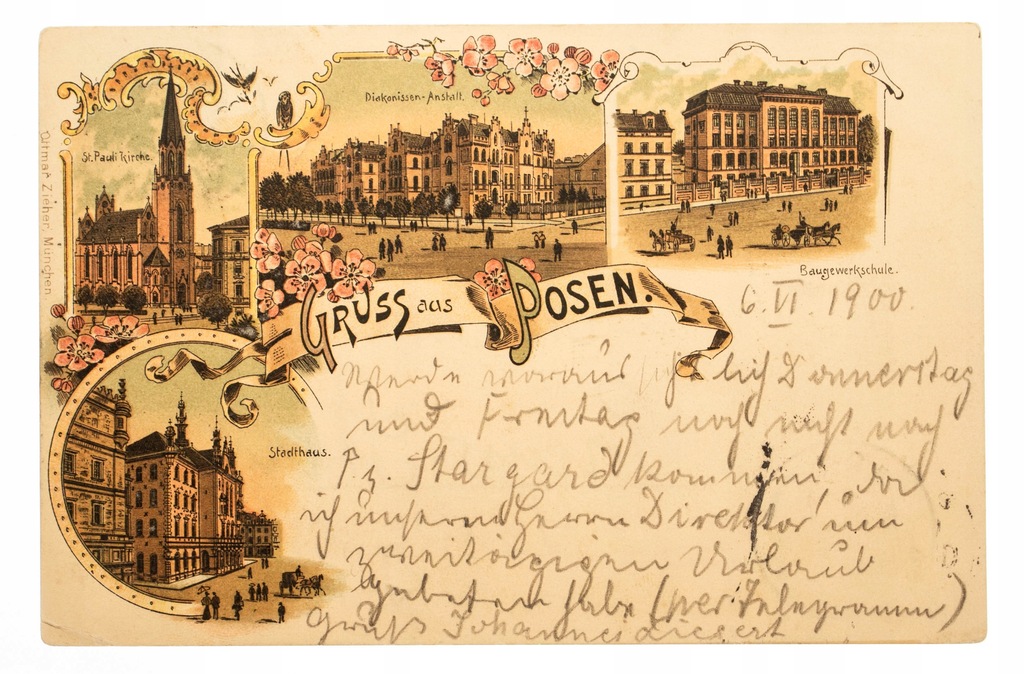 St. Pauli Kirche.
Diakonissen-Anstalt.
Baugewerkschule.
Ottmar Zieher, München
GRUSS aus POSEN.
6. VI. 1900.
Stadthaus.
Werde voraussichtlich Donnerstag
und Freitag noch nicht nach
Pr. Stargard kommen, da
ich unseren Herrn Direktor um
zweitägigen Urlaub
gebeten habe (per Telegramm)
Gruß Johannes